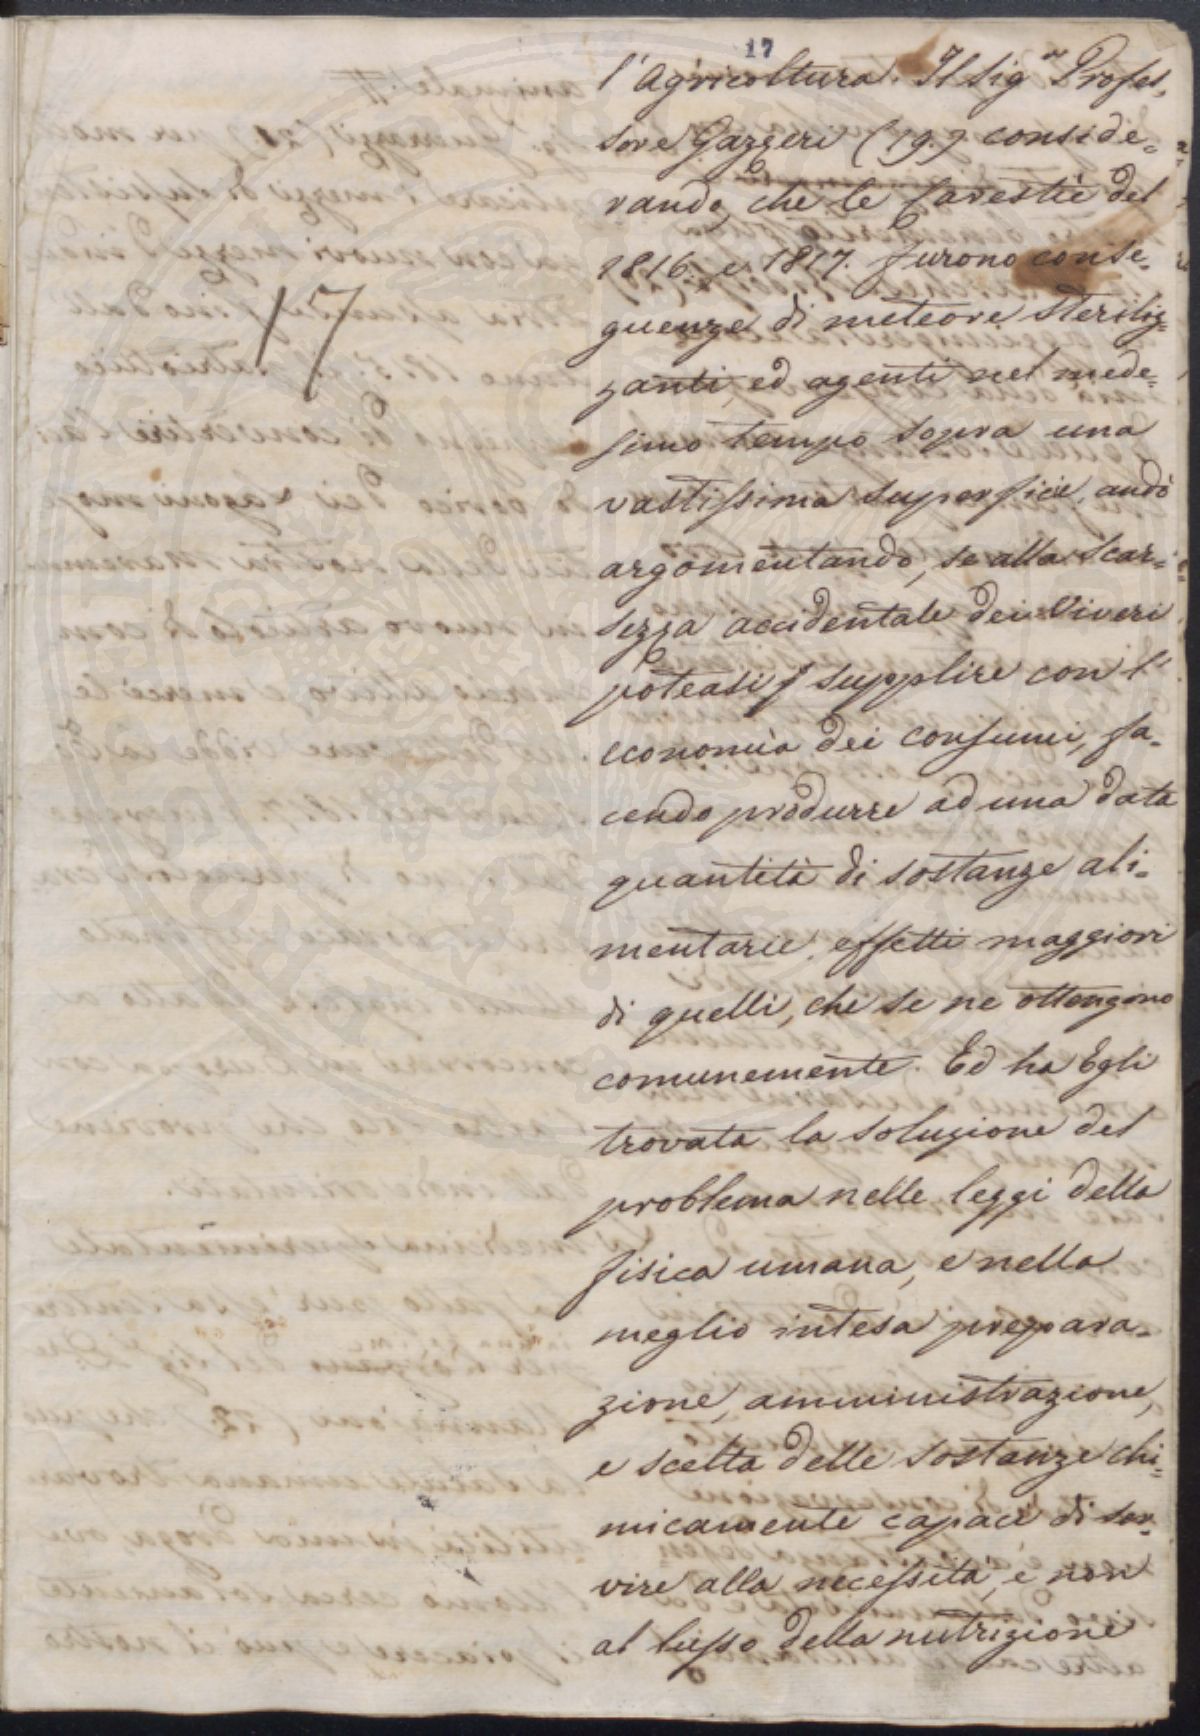 17
17
l'Agricoltura. Il Sig.r Profes=
sore Gazzeri (19.) conside=
rando, che le Carestie del
1816. e 1817. furono conse=
guenze di meteore steriliz=
zanti, ed agenti nel mede=
simo tempo sopra una
vastissima superficie, andò
argomentando, se alla scar=
sezza accidentale dei Viveri
poteasi supplire con l'
economia dei consumi, fa=
cendo produrre ad una data
quantità di sostanze ali=
mentarie, effetti maggiori
di quelli, che se ne ottengono
comunemente. Ed ha Egli
trovata la soluzione del
problema nelle leggi della
fisica umana, e nella
meglio intesa prepara=
zione, amministrazione,
e scelta delle sostanze chi=
micamente capaci di ser=
vire alla necessità, e non
al lusso della nutrizione